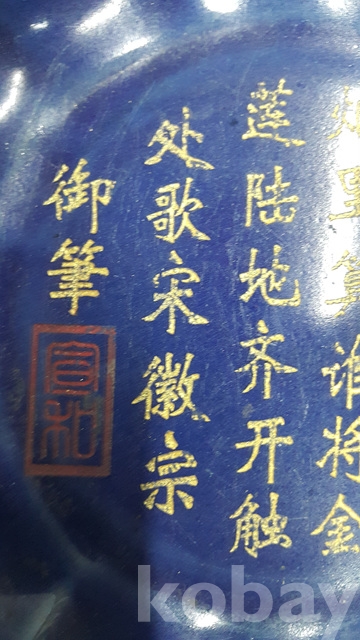 谁将金
莲陆地齐开触
处歌宋徽宗
御筆
宣和
kobay